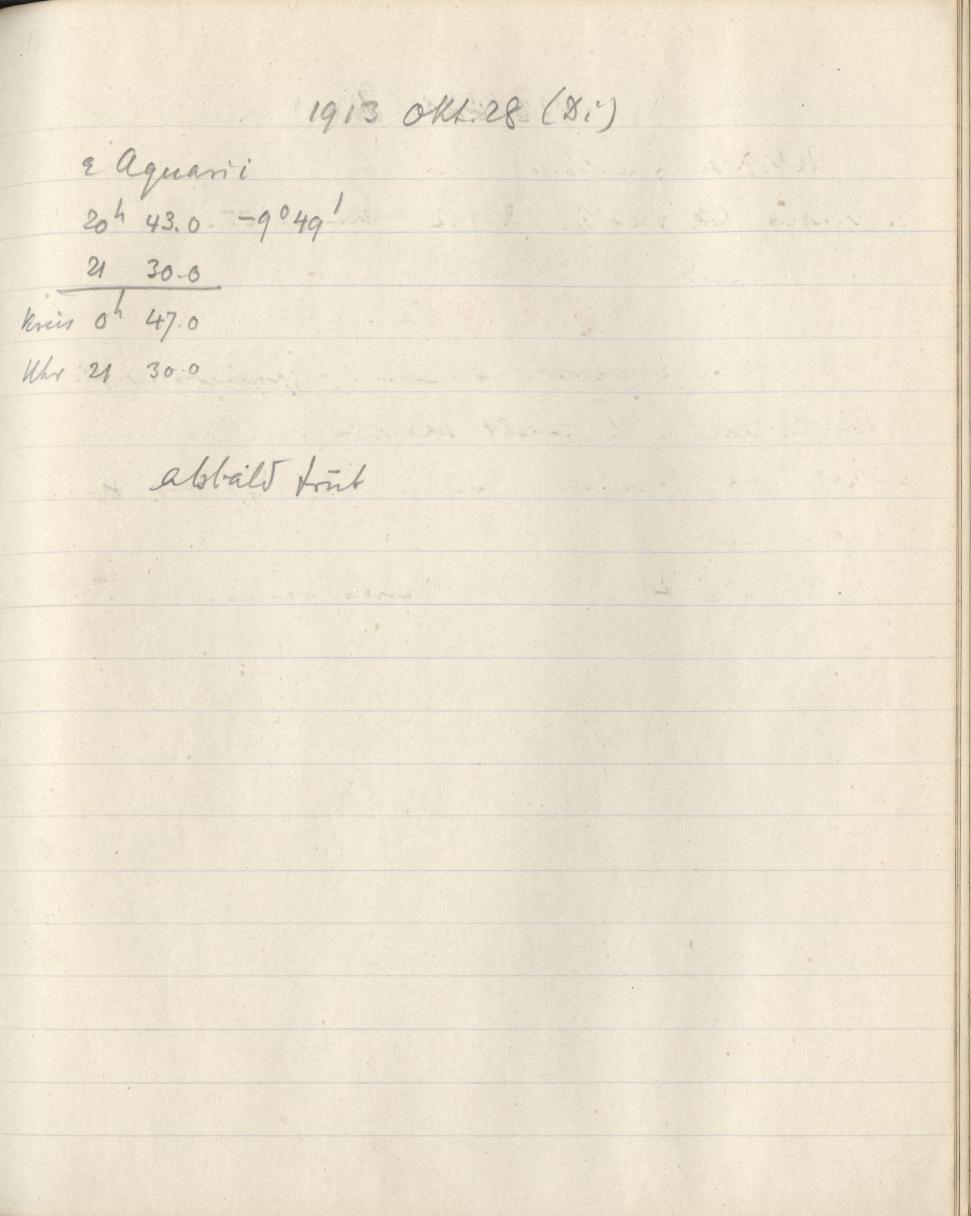 1913 Okt. 28 (Di)
ε Aquarii
20ʰ 43.0 −9° 49'
21 30.0
Kreis 0ʰ 47.0
Uhr 21 30.0
alsbald trüb